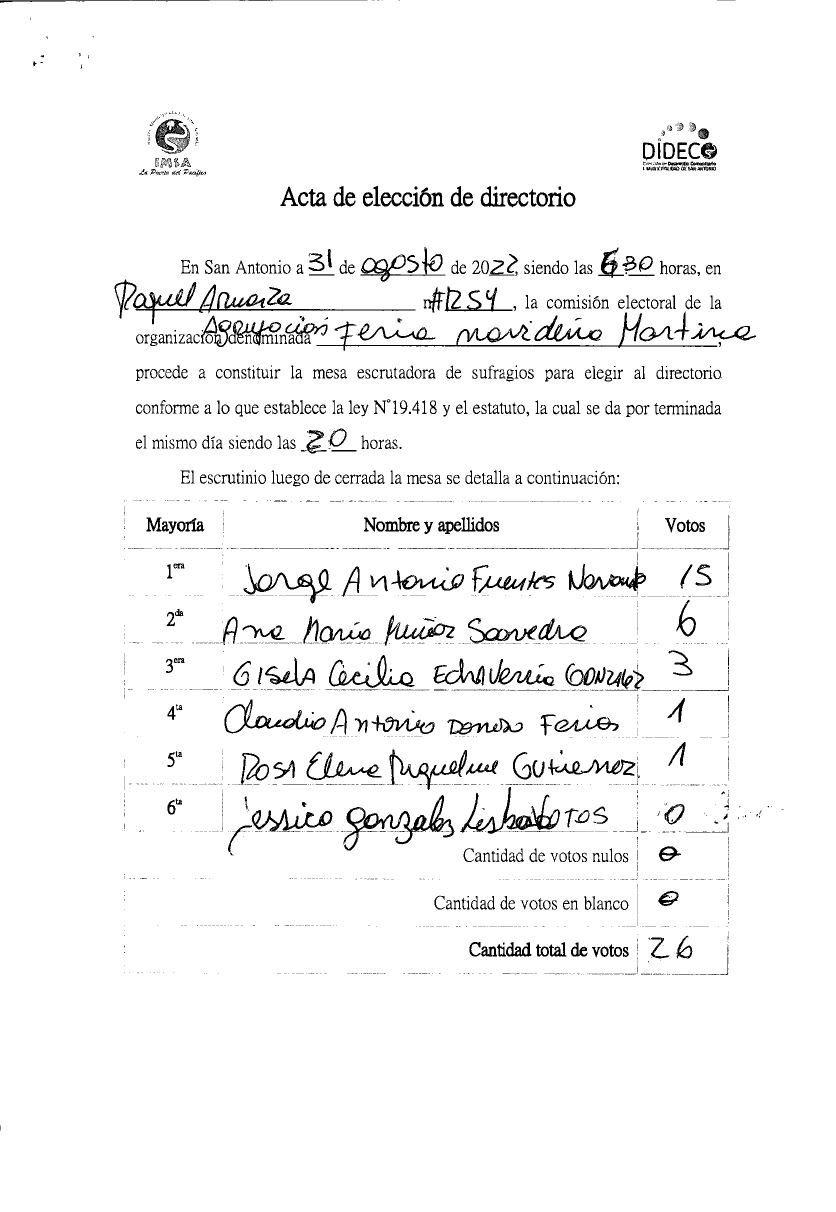 IMSA
La Puerta del Pacífico
DIDECO
Dirección de Desarrollo Comunitario
I. MUNICIPALIDAD DE SAN ANTONIO
Acta de elección de directorio
En San Antonio a 31 de agosto de 2022, siendo las 6:30 horas, en
Raquel n#1254, la comisión electoral de la
organización denominada Agrupación feria navideña Martina,
procede a constituir la mesa escrutadora de sufragios para elegir al directorio
conforme a lo que establece la ley N°19.418 y el estatuto, la cual se da por terminada
el mismo día siendo las 20 horas.
El escrutinio luego de cerrada la mesa se detalla a continuación:
Mayoría Nombre y apellidos Votos
1era Jorge Antonio Fuentes 15
2da Ana Maria Muñoz Saavedra 6
3era Gisela Cecilia Echaverria Gonzalez 3
4ta Claudio Antonio Ferias 1
5ta Rosa Elena Riquelme Gutierrez 1
6ta Jessica gonzalez 0
Cantidad de votos nulos 0
Cantidad de votos en blanco 0
Cantidad total de votos 26